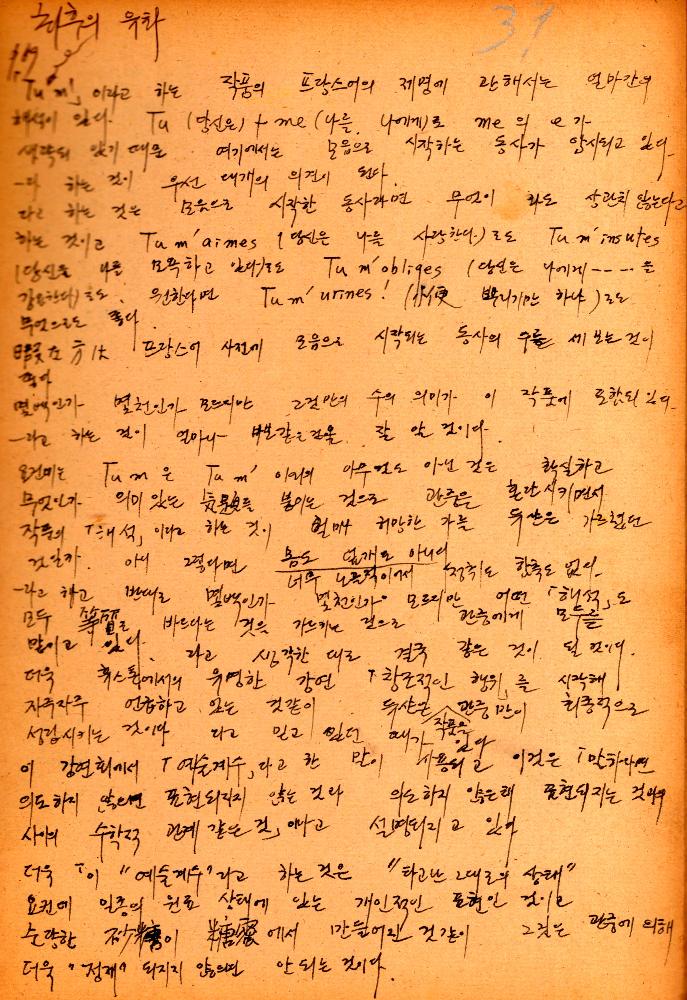 최후의 유화
37
「Tu m'」이라고 하는 작품의 프랑스어의 제명에 관해서는 얼마간의
해석이 있다. Tu (당신은) + me (나를, 나에게)로 me의 e가
생략되 있기 때문 여기에서는 모음으로 시작하는 동사가 암시되고 있다.
─라 하는 것이 우선 대개의 의견이 된다.
라고 하는 것은 모음으로 시작한 동사라면 무엇이 라도 상관치 않는다고
하는 것이고 Tu m'aimes (당신은 나를 사랑한다.)로도 Tu m'insutes
(당신은 나를 모욕하고 있다)로도 Tu m'obliges (당신은 나에게 ---- 를
강요한다)로도, 원한다면 Tu m'urines! (小便 뿌리기만 하나)로도
무엇으로도 좋다.
프랑스어 사전에 모음으로 시작되는 동사의 수를 세 보는 것이
몇백인가 몇천인가 모르지만 그것만의 수의 의미가 이 작품에 포함되 있다.
─라고 하는 것이 얼마나 바보같은 것을 잘 안 것이다.
요컨데는 Tu m은 Tu m' 이외의 아무것도 아닌 것은 확실하고
무엇인가 의미있는 를 붙이는 것으로 관중은 혼란시키면서
작품의 「해석」이라고 하는 것이 얼마나 허망한 가를 듀샹은 가르쳤던
것일까. 아니 그렇다면 몸도 덮개도 아니다
너무 노골적이어서 정취도 함축도 없다.
─라고 하고 반대로 몇백인가 몇천인가 모르지만 어떤 「해석」도
모두 等質로 바드다는 것을 가르키는 것으로 관중에게 모두를
맡이고 있다. 라고 생각한 대로 결국 같은 것이 될 것이다.
더욱 휴스톤에서의 유명한 강연 「창조적인 행위」를 시작해
자주자주 언급하고 있는 것같이 듀샹은 관중만이 최종적으로
작품을
성립시키는 것이다 라고 믿고 있던 때가 있다
이 강연회에서 「예술계수」라고 한 말이 사용되고 이것은 「말하자면
의도하지 않으면 표현되지 않는 것과 의도하지 않은채 표현되지는 것과의
사이의 수학적 관계 같은 것」이라고 설명되지고 있다
더욱 「이 "예술계수"라고 하는 것은 "타고난 그대로의 상태"
요컨데 일종의 원료 상태에 있는 개인적인 표현인 것이고
순량한 砂糖이 糖蜜에서 만들어진 것같이 그것은 관중에 의해
더욱 "정제" 되지지 않으면 안되는 것이다.